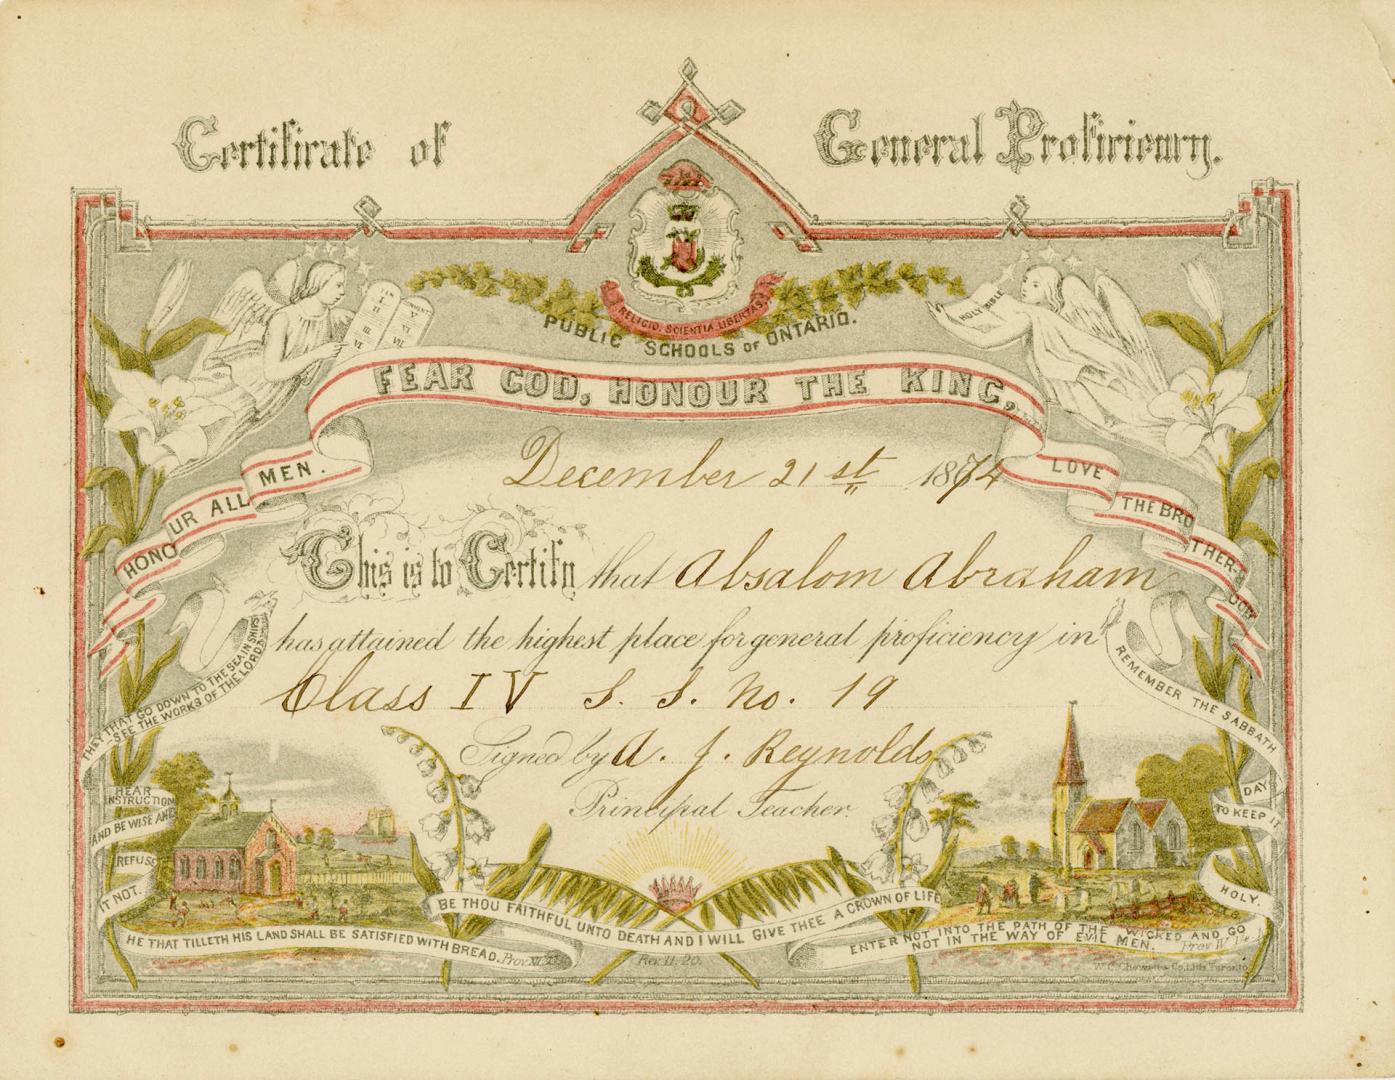 Certificate of General Proficiency.
RELIGIO. SCIENTIA. LIBERTAS.
PUBLIC SCHOOLS OF ONTARIO.
HOLY BIBLE
FEAR GOD, HONOUR THE KING,
HONOUR ALL MEN.
LOVE THE BROTHERHOOD
December 21st 1874
This is to Certify that Absalom Abraham
has attained the highest place for general proficiency in
Class IV S. S. No. 19
Signed by A. J. Reynolds
Principal Teacher.
THEY THAT GO DOWN TO THE SEA IN SHIPS
SEE THE WORKS OF THE LORD.
REMEMBER THE SABBATH DAY TO KEEP IT HOLY.
HEAR INSTRUCTION
AND BE WISE AND
REFUSE
IT NOT.
HE THAT TILLETH HIS LAND SHALL BE SATISFIED WITH BREAD. Prov XII
BE THOU FAITHFUL UNTO DEATH AND I WILL GIVE THEE A CROWN OF LIFE
Rev. II. 20.
ENTER NOT INTO THE PATH OF THE WICKED AND GO
NOT IN THE WAY OF EVIL MEN. Prov IV
W. C. Chewett & Co. Lith. Toronto